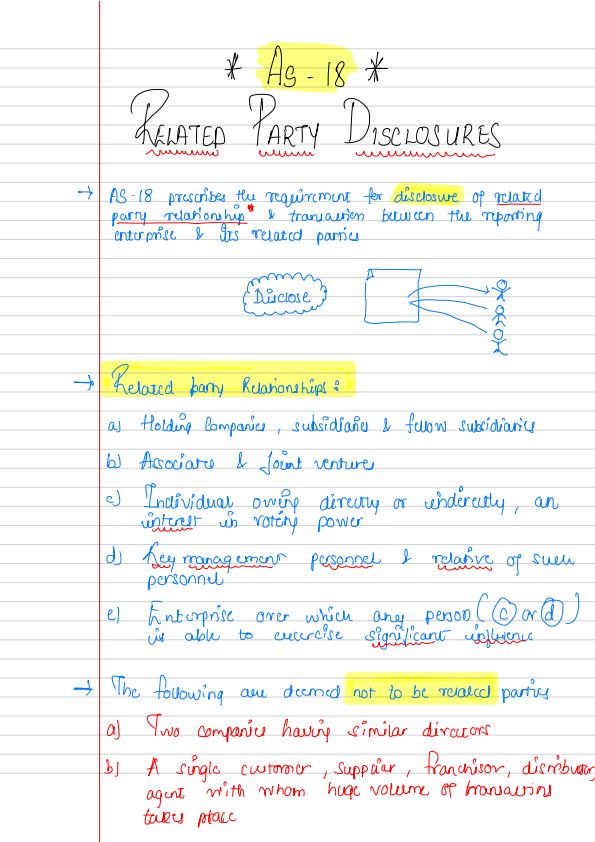 * AS-18 *
RELATED PARTY DISCLOSURES
→ AS-18 prescribes the requirement for disclosure of related
party relationship* & transaction between the reporting
enterprise & its related parties
Disclose
→ Related party Relationships:
a) Holding Companies, subsidiaries & fellow subsidiaries
b) Associates & Joint ventures
c) Individual owing directly or indirectly, an
interest in voting power
d) Key management personnel & relative of such
personnel
e) Enterprise over which any person (c or d)
is able to excercise significant influence
→ The following are deemed not to be related parties
a) Two companies having similar directors
b) A single customer, supplier, franchisor, distributor,
agent with whom huge volume of transactions
takes place